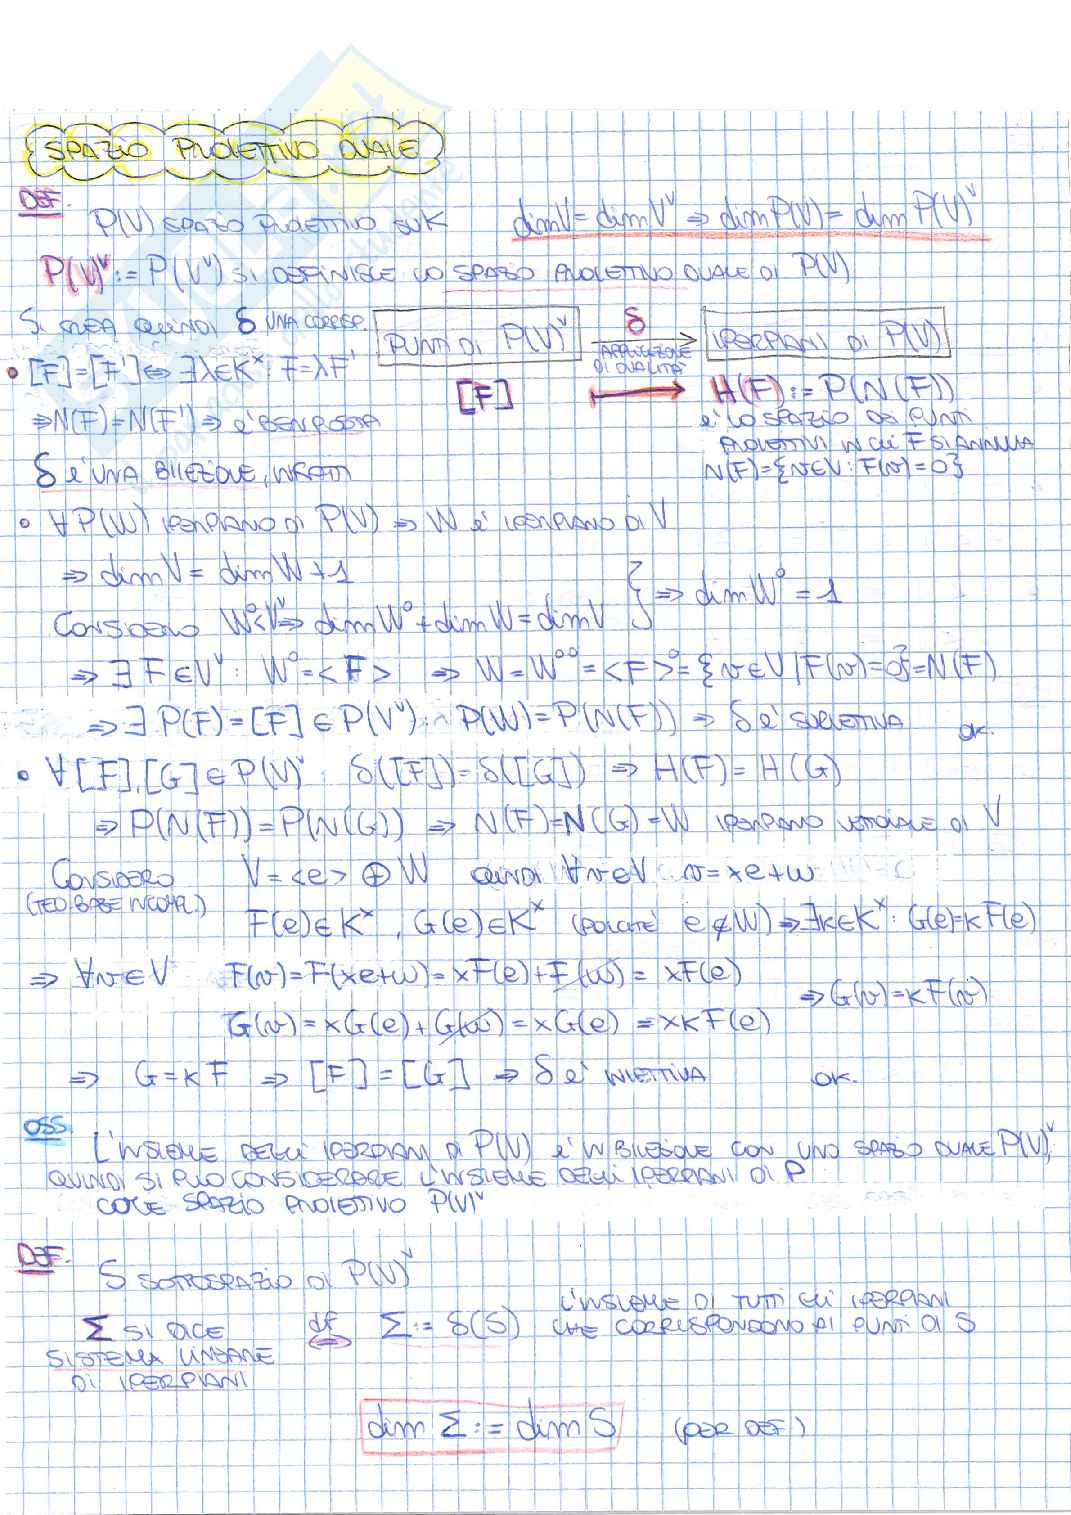 SPAZIO PROIETTIVO DUALE
DEF. P(V) SPAZIO PROIETTIVO SU K dimV = dimV^v ⇒ dim P(V) = dim P(V)^v
P(V)^v := P(V^v) SI DEFINISCE LO SPAZIO PROIETTIVO DUALE DI P(V)
SI CREA QUINDI δ UNA CORRISP. PUNTI DI P(V)^v δ APPLICAZIONE DI DUALITA' IPERPIANI DI P(V)
• [F]=[F'] ⇔ ∃λ∈K^x : F=λF' [F] ⟼ H(F) := P(N(F))
⇒ N(F)=N(F') ⇒ e' BEN POSTA e' LO SPAZIO DEI PUNTI
PROIETTIVI IN CUI F SI ANNULLA
δ e' UNA BIIEZIONE, INFATTI N(F)={v∈V : F(v)=0}
• ∀ P(W) IPERPIANO DI P(V) ⇒ W e' IPERPIANO DI V
⇒ dimV = dimW+1
CONSIDERO W°<V^v ⇒ dimW° + dimW = dimV } ⇒ dimW° = 1
⇒ ∃ F∈V^v : W° = <F> ⇒ W = W°° = <F>° = {v∈V | F(v)=0} = N(F)
⇒ ∃ P(F) = [F] ∈ P(V^v) : P(W) = P(N(F)) ⇒ δ e' SURIETTIVA OK.
• ∀ [F],[G] ∈ P(V)^v : δ([F]) = δ([G]) ⇒ H(F) = H(G)
⇒ P(N(F)) = P(N(G)) ⇒ N(F)=N(G)=W IPERPIANO VETTORIALE DI V
CONSIDERO V = <e> ⊕ W QUINDI ∀v∈V v = xe+w
(TEO. BASE INCOMPL.) F(e)∈K^x, G(e)∈K^x (POICHE' e∉W) ⇒ ∃k∈K^x : G(e)=kF(e)
⇒ ∀v∈V F(v) = F(xe+w) = xF(e)+F(w) = xF(e)
G(v) = xG(e)+G(w) = xG(e) = xkF(e) ⇒ G(v)=kF(v)
⇒ G=kF ⇒ [F]=[G] ⇒ δ e' INIETTIVA OK.
OSS. L'INSIEME DEGLI IPERPIANI DI P(V) e' IN BIIEZIONE CON UNO SPAZIO DUALE P(V)^v,
QUINDI SI PUO CONSIDERARE L'INSIEME DEGLI IPERPIANI DI P
COME SPAZIO PROIETTIVO P(V)^v
DEF. S SOTTOSPAZIO DI P(V)^v
Σ SI DICE SISTEMA LINEARE DI IPERPIANI df ⇔ Σ := δ(S) L'INSIEME DI TUTTI GLI IPERPIANI
CHE CORRISPONDONO AI PUNTI DI S
dim Σ := dim S (PER DEF)